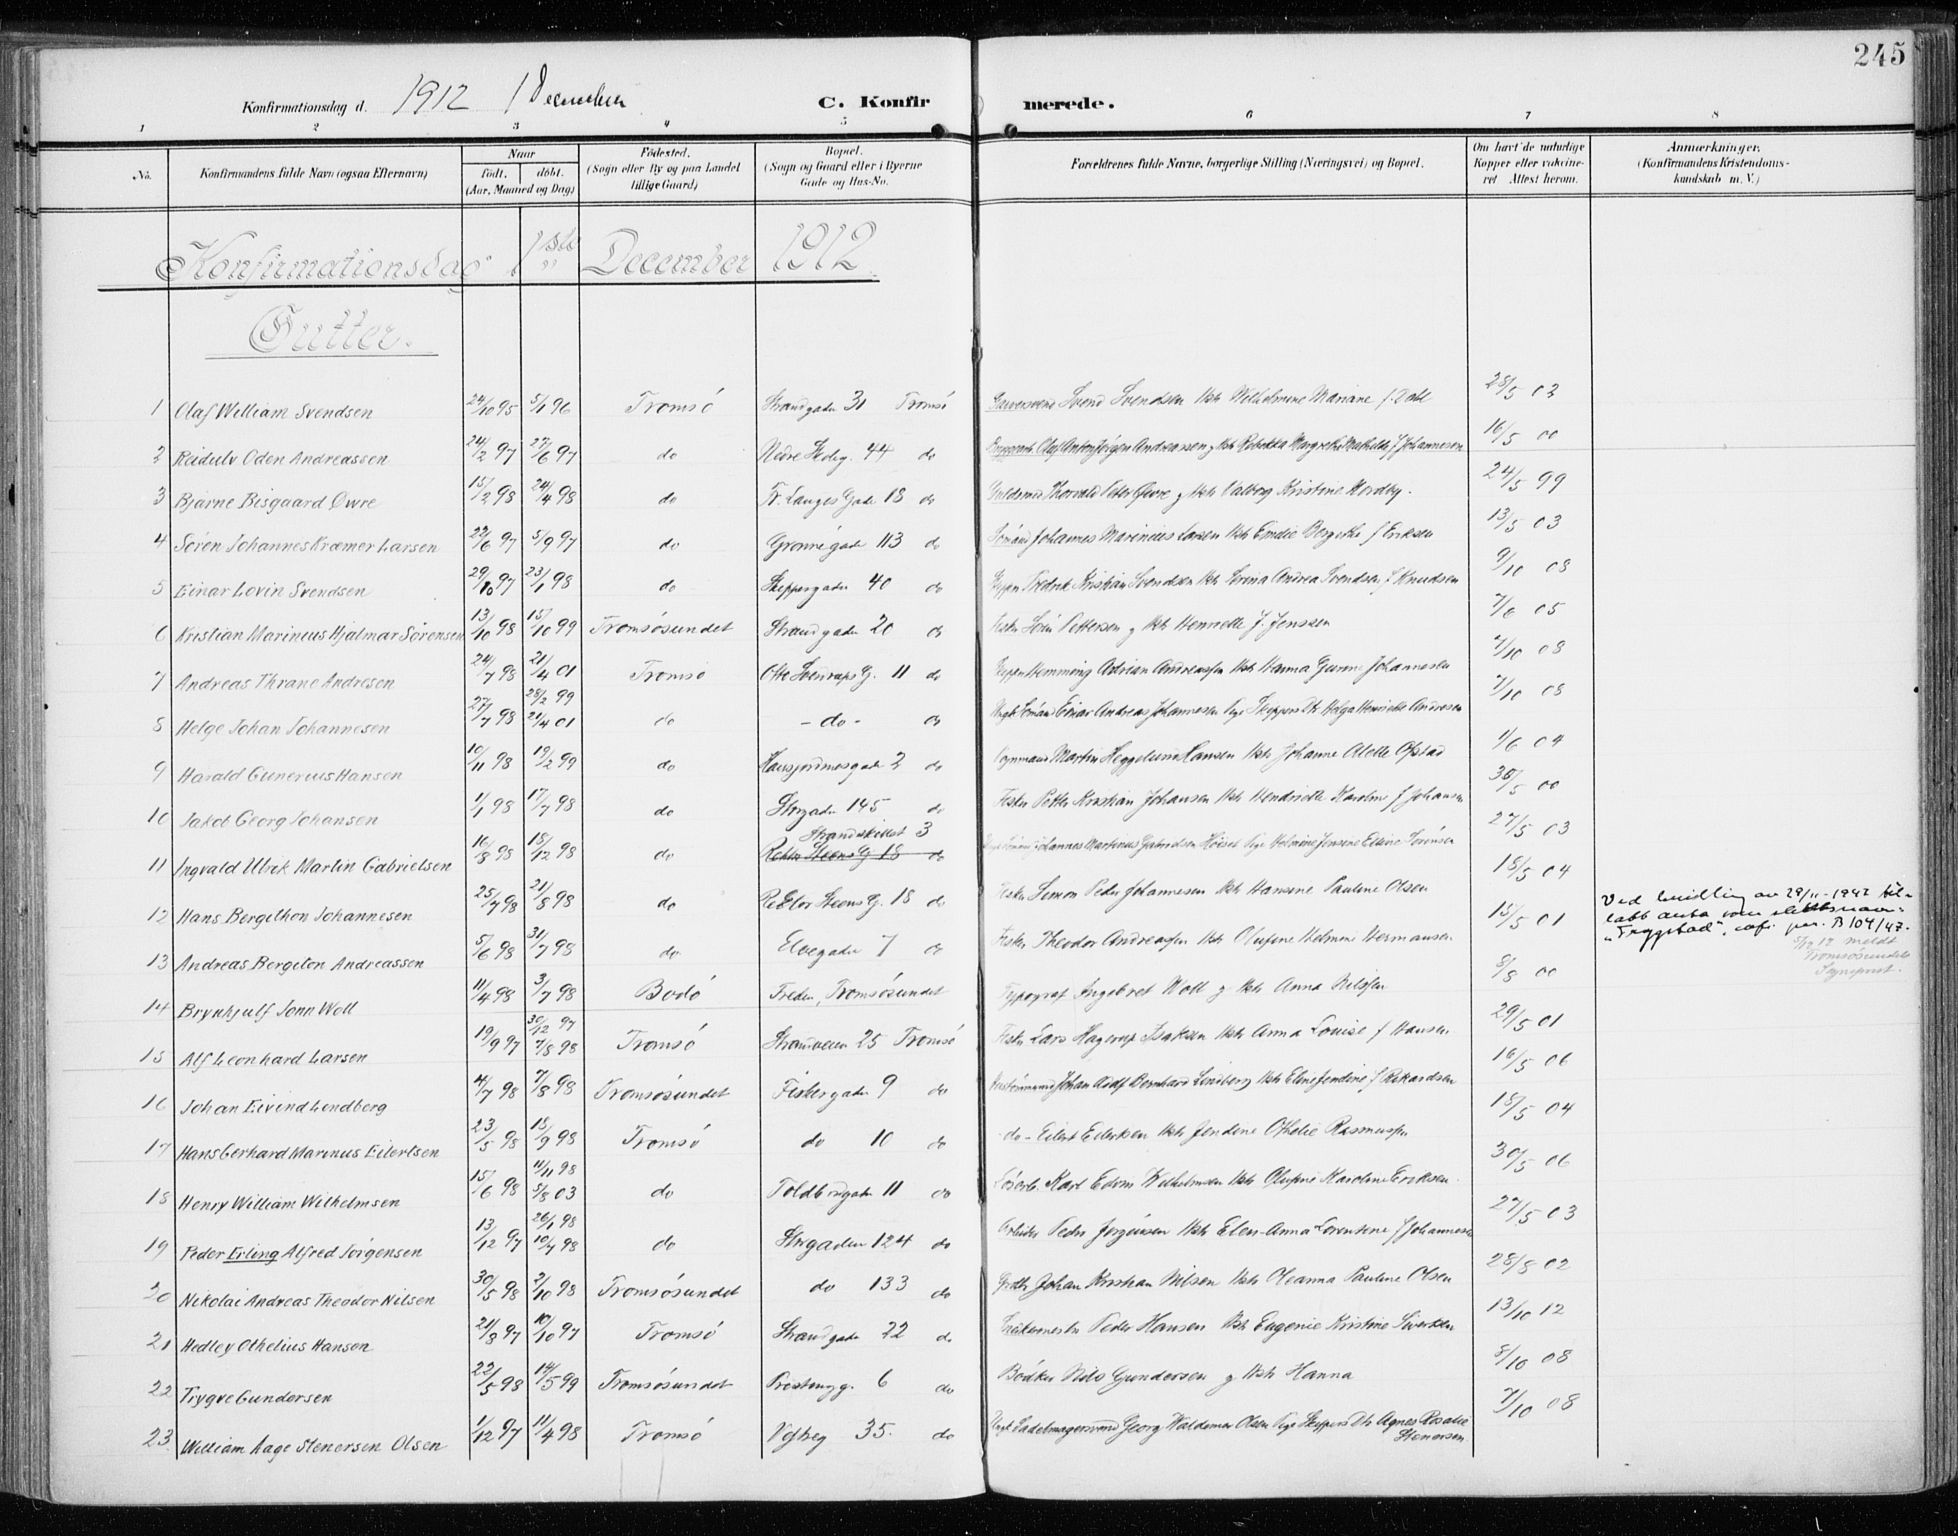 245
Konfirmationsdag d. 1912 1 December C. Konfir merede.
1 2 3 4 5 6 7 8
No. Konfirmandens fulde Navn (ogsaa Efternavn) Naar født. døbt. (Aar, Maaned og Dag) Fødested. (Sogn eller By og paa Landet tillige Gaard) Bopæl. (Sogn og Gaard eller i Byerne Gade og Hus-No. Forældrenes fulde Navne, borgerlige Stilling (Næringsvei) og Bopæl. Om havt de naturlige Kopper eller vaccineret Attest herom. Anmærkninger. (Konfirmandens Kristendomskundskab m. V.)
Konfirmationsdag 1ste December 1912
Gutter.
1 Olaf William Svendsen 24/10 95 5/1 96 Tromsö Strandgaden 31 Tromsö Svend Svendsen Wilhelmine Mariane f. Dahl 28/5 02
2 Reidulv Oden Andreassen 24/2 97 27/6 97 do Nedre 44 do Olaf Anton Jörgen Andreassen og Rebekka Margrethe Mathilde f Johannesen 16/5 00
3 Bjarne Bisgaard Øwre 15/2 98 24/4 98 do Fr. Langes Gade 18 do Thorvald Peter Øwre og Valborg Kristine Nordby. 24/5 99
4 Sören Johannes Kræmer Larsen 22/6 97 5/9 97 do Grönnegade 113 do Johannes Marinius Larsen Emilie Bergithe f Eriksen 13/5 03
5 Einar Lovin Svendsen 29/10 97 23/1 98 do Skippergaden 40 do Fredrik Kristian Svendsen Lorina Andrea Svendsen f Knudsen 9/10 08
6 Kristian Marinius Hjalmar Sörensen 13/10 98 15/10 99 Tromsösundet Strandgaden 20 do Sören Pettersen og Henriette J. Jenssen 7/6 05
7 Andreas Thrane Andresen 24/7 98 21/4 01 Tromsö Otto Sverdrups G. 11 do Hemming Adrian Andreassen Hanna Gurine Johannesen 7/10 08
8 Helge Johan Johannesen 27/7 98 28/2 99 21/4 01 do - do - do Einar Andreas Johannesen Pige Skippers Dtr Helga Henriette Andresen 7/10 08
9 Harald Gunerius Hansen 10/11 98 19/2 99 do Hansjordnesgaden 2 do Martin Heggelund Hansen Johanne Alette Ofstad 1/6 04
10 Jakob Georg Johansen 1/1 98 17/7 98 do Storgaden 145 do Petter Kristian Johansen Hendriette Karoline f Johansen 30/5 00
11 Ingvald Ulrik Martin Gabrielsen 16/8 98 18/12 98 do Strandskillet 3 Rektor Steens G 18 do Johannes Martinus Gabrielsen Helmine Jensine Elvine Sörensen 27/5 03
12 Hans Bergithon Johannesen 25/7 98 21/8 98 do Rektor Steens G. 18 do Fisker Simon Peder Johannesen Hansine Pauline Olsen 18/5 04
Ved 29/11-1947 til- "Tryggstad", B 104/47.
13 Andreas Bergeton Andreassen 5/6 98 31/7 98 do Elvegaden 7 do Fisker Theodor Andreassen Olufine Helmine Hermansen 15/5 01
5/12 12 meldt Tromsösundets Sogneprest.
14 Brynhjulf Jonn Woll 11/4 98 3/7 98 Bodö Tromsösundet Typograf Ingebret Woll og Anna Nilssen 8/8 00
15 Alf Leonhard Larsen 19/9 97 30/12 97 7/8 98 Tromsö Strandveien 25 Tromsö Fisker Lars Hagerup Isaksen Anna Louise f Hansen 29/5 01
16 Johan Eivind Lendberg 4/7 98 7/8 98 Tromsösundet Fiskergaden 9 do Johan Adolf Bernhard Lindberg Eline Jendine f Rikardsen 16/5 06
17 Hans Gerhard Marinus Eilertsen 23/5 98 18/9 98 Tromsö do 10 do - do - Eilert Eilertsen Jendine Othelie Rasmussen 18/5 04
18 Henry William Wilhelmsen 15/6 98 4/11 98 5/8 03 do Toldbodgaden 11 do Karl Edom Wilhelmsen Olufine Karoline Eriksen. 30/5 06
19 Peder Erling Alfred Jörgensen 13/12 97 26/1 98 10/7 98 do Storgaden 124 do Arbeider Peder Jörgensen Elen-Anna Lorentine f Johannesen 27/5 03
20 Nikolai Andreas Theodor Nilsen 30/5 98 2/10 98 Tromsösundet do 133 do Johan Kristian Nilsen Oleanna Pauline Olsen 28/5 02
21 Hedley Othelius Hansen 21/8 97 10/10 97 Tromsö Strandgaden 22 do Peder Hansen Eugenie Kristine Sivertsen 13/10 12
22 Trygve Gundersen 22/5 98 14/5 99 Tromsösundet 6 do Bödker Nils Gundersen og Hanna 8/10 08
23 William Aage Stenersen Olsen 1/12 97 11/4 98 Tromsö 35. do Georg Waldemar Olsen Pige Skippers Dtr Agnes Rosalie Stenersen 7/10 08